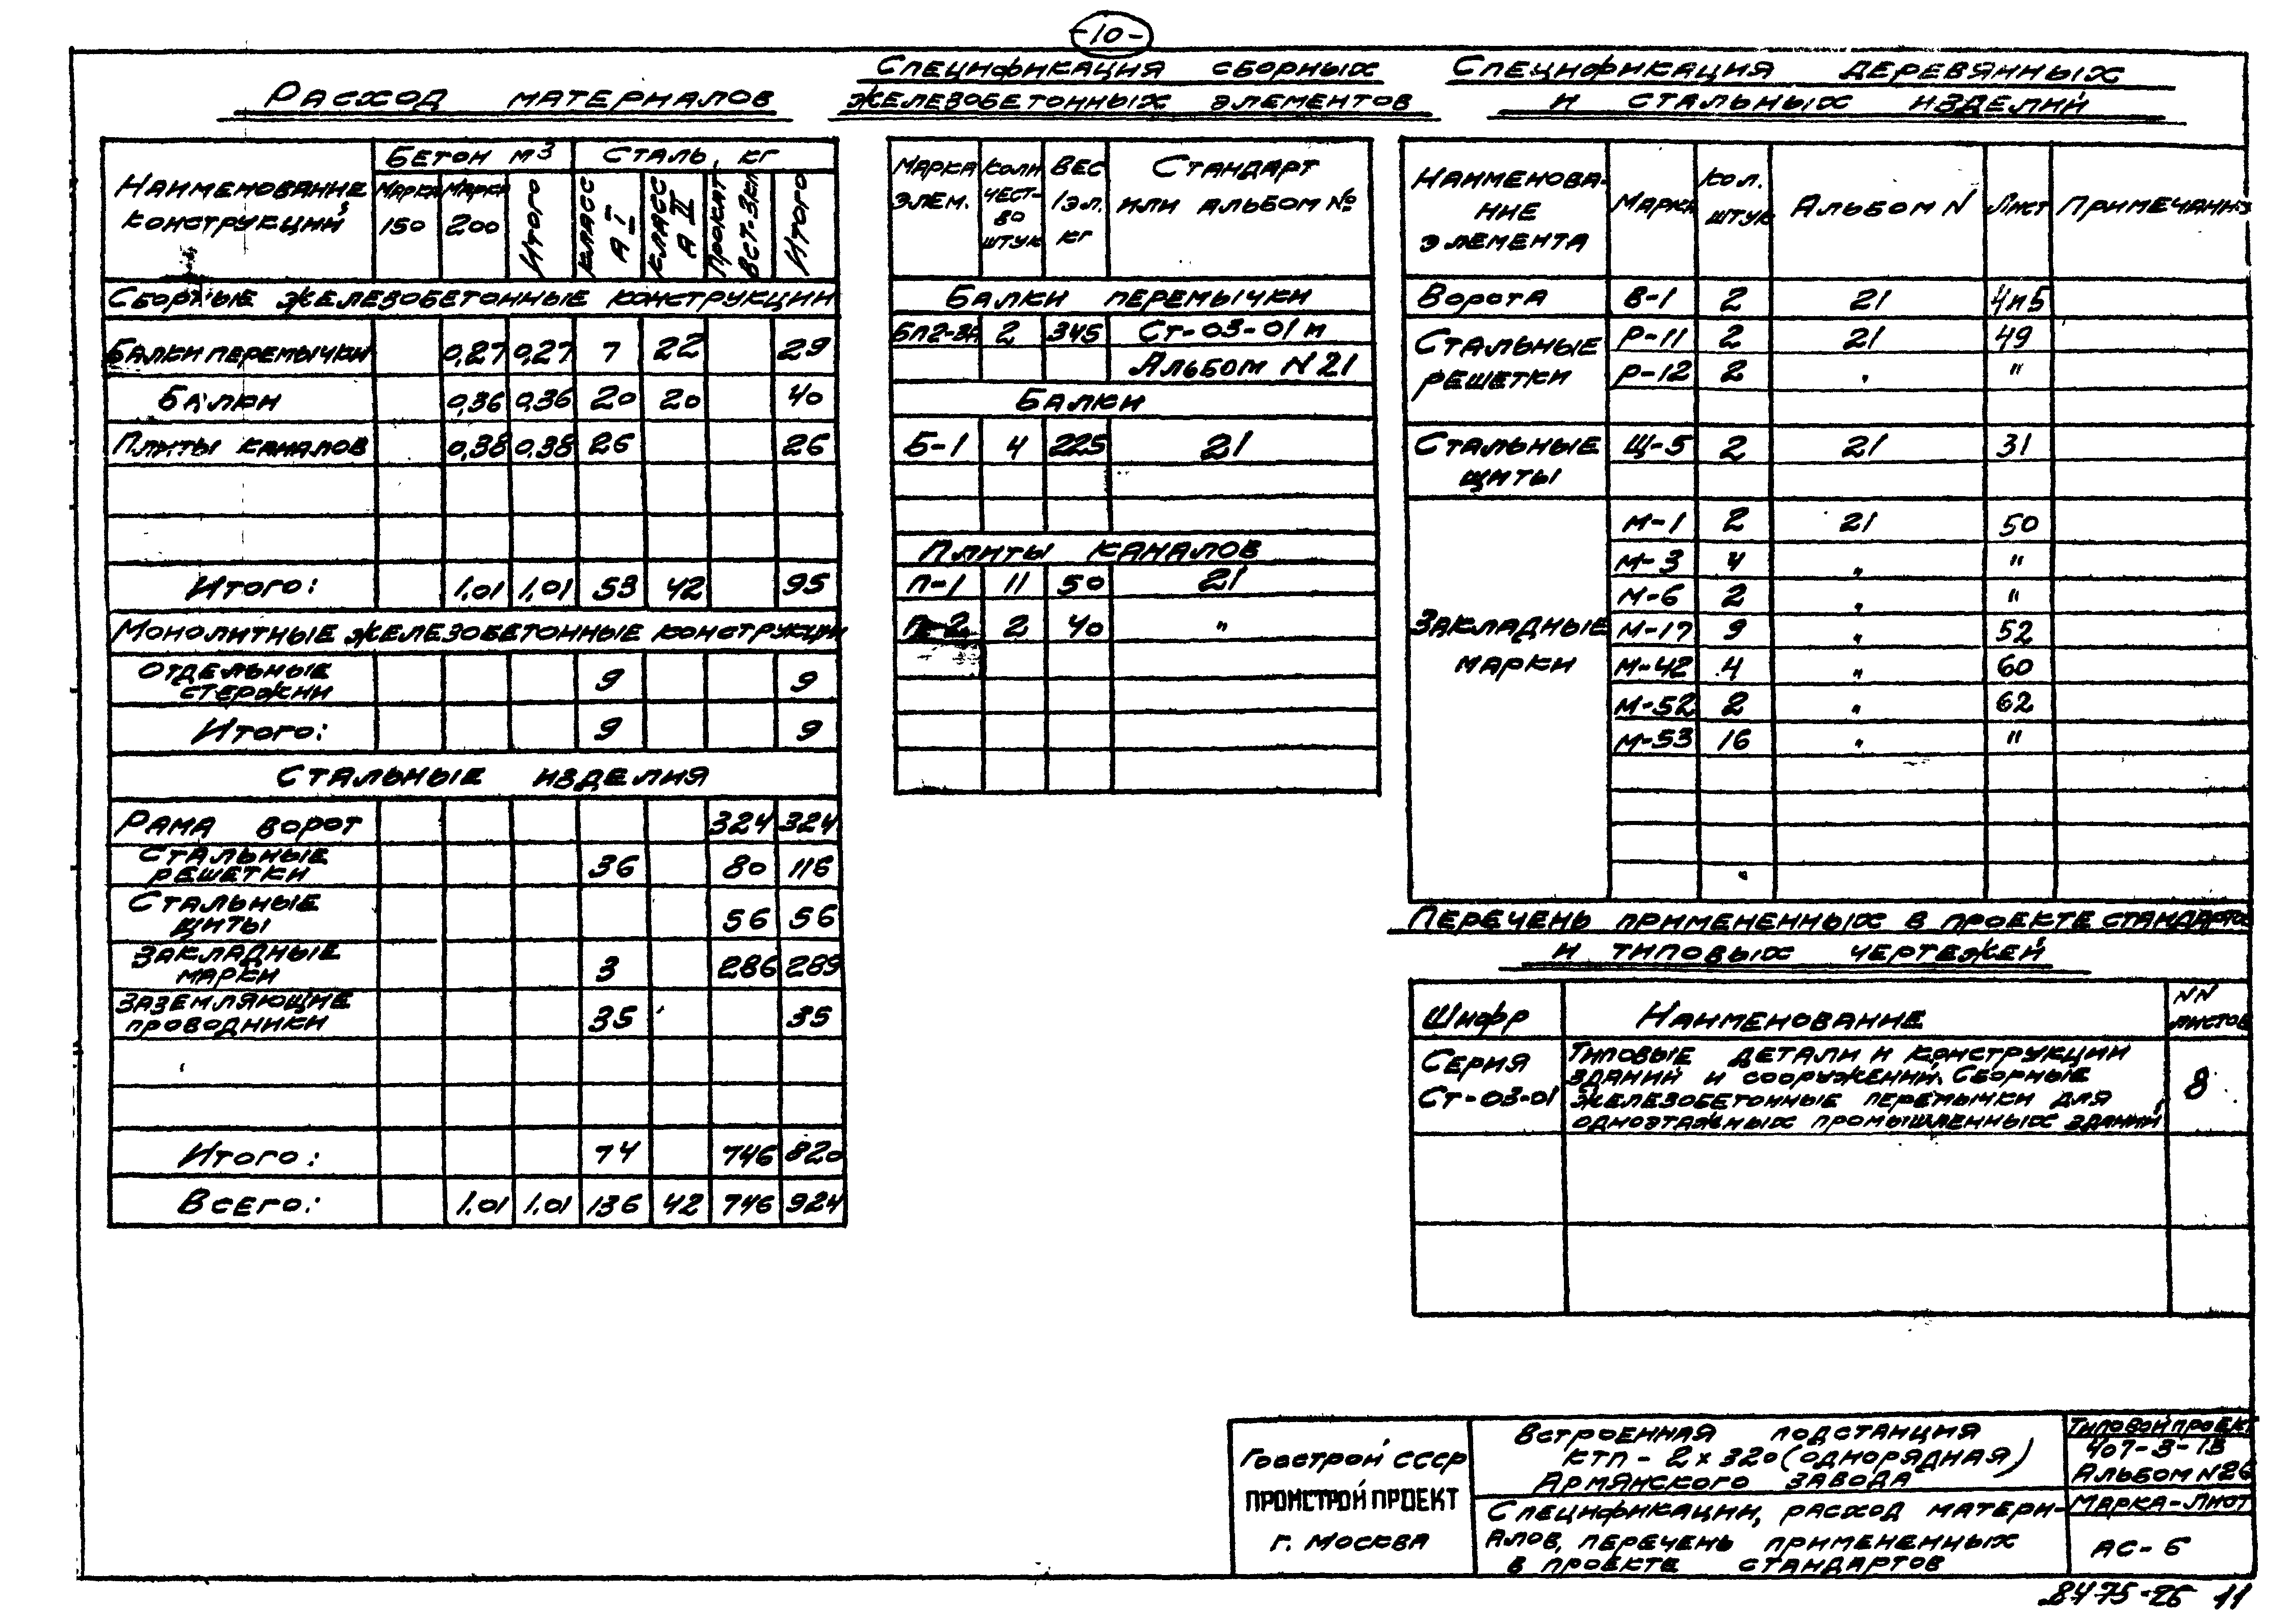 -10-
Расход материалов
Наименование конструкций | Бетон м3 | Сталь, кг
Марка 150 | Марка 200 | Итого | Класс А I | Класс А II | Прокат ВСт-3кп | Итого
Сборные железобетонные конструкции
Балки перемычки | 0,27 | 0,27 | 7 | 22 | 29
Балки | 0,36 | 0,36 | 20 | 20 | 40
Плиты каналов | 0,38 | 0,38 | 26 | 26
Итого: | 1,01 | 1,01 | 53 | 42 | 95
Монолитные железобетонные конструкции
Отдельные стержни | 9 | 9
Итого: | 9 | 9
Стальные изделия
Рама ворот | 324 | 324
Стальные решетки | 36 | 80 | 116
Стальные щиты | 56 | 56
Закладные марки | 3 | 286 | 289
Заземляющие проводники | 35 | 35
Итого: | 74 | 746 | 820
Всего: | 1,01 | 1,01 | 136 | 42 | 746 | 924
Спецификация сборных
железобетонных элементов
Марка элем. | Количество штук | Вес 1 эл. кг | Стандарт или альбом №
Балки перемычки
2 | 345 | Ст-03-01 и
Альбом N 21
Балки
Б-1 | 4 | 225 | 21
Плиты каналов
П-1 | 11 | 50 | 21
П-2 | 2 | 40 | "
Спецификация деревянных
и стальных изделий
Наименование элемента | Марка | Кол. штук | Альбом N | Лист | Примечание
Ворота | В-1 | 2 | 21 | 4и5
Стальные решетки | Р-11 | 2 | 21 | 49
Р-12 | 2 | " | "
Стальные щиты | Щ-5 | 2 | 21 | 31
Закладные марки | М-1 | 2 | 21 | 50
М-3 | 4 | " | "
М-6 | 2 | " | "
М-17 | 9 | " | 52
М-42 | 4 | " | 60
М-52 | 2 | " | 62
М-53 | 16 | " | "
Перечень примененных в проекте стандартов
и типовых чертежей
Шифр | Наименование | NN листов
Серия Ст-03-01 | Типовые детали и конструкции
зданий и сооружений. Сборные
железобетонные перемычки для
одноэтажных промышленных зданий | 8
Госстрой СССР
ПРОМСТРОЙПРОЕКТ
г. Москва
Встроенная подстанция
КТП-2х320 (однорядная)
Армянского завода
Спецификации, расход матери-
алов, перечень примененных
в проекте стандартов
Типовой проект
407-3-13
Альбом N 26
Марка-лист
АС-6
8475-26 11